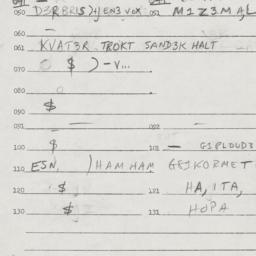 050 052 M1Z3MAL
060
061 KVAT3R TROKT SAND3K HALT
070 $ ) - V...
080
090 $
091 092
100 $ 101 — G1PLOUD3
110 ESN. ) HAM HAM GEJKORMET
120 $ 121 HA, ITA,
130 $ 131 HOPA